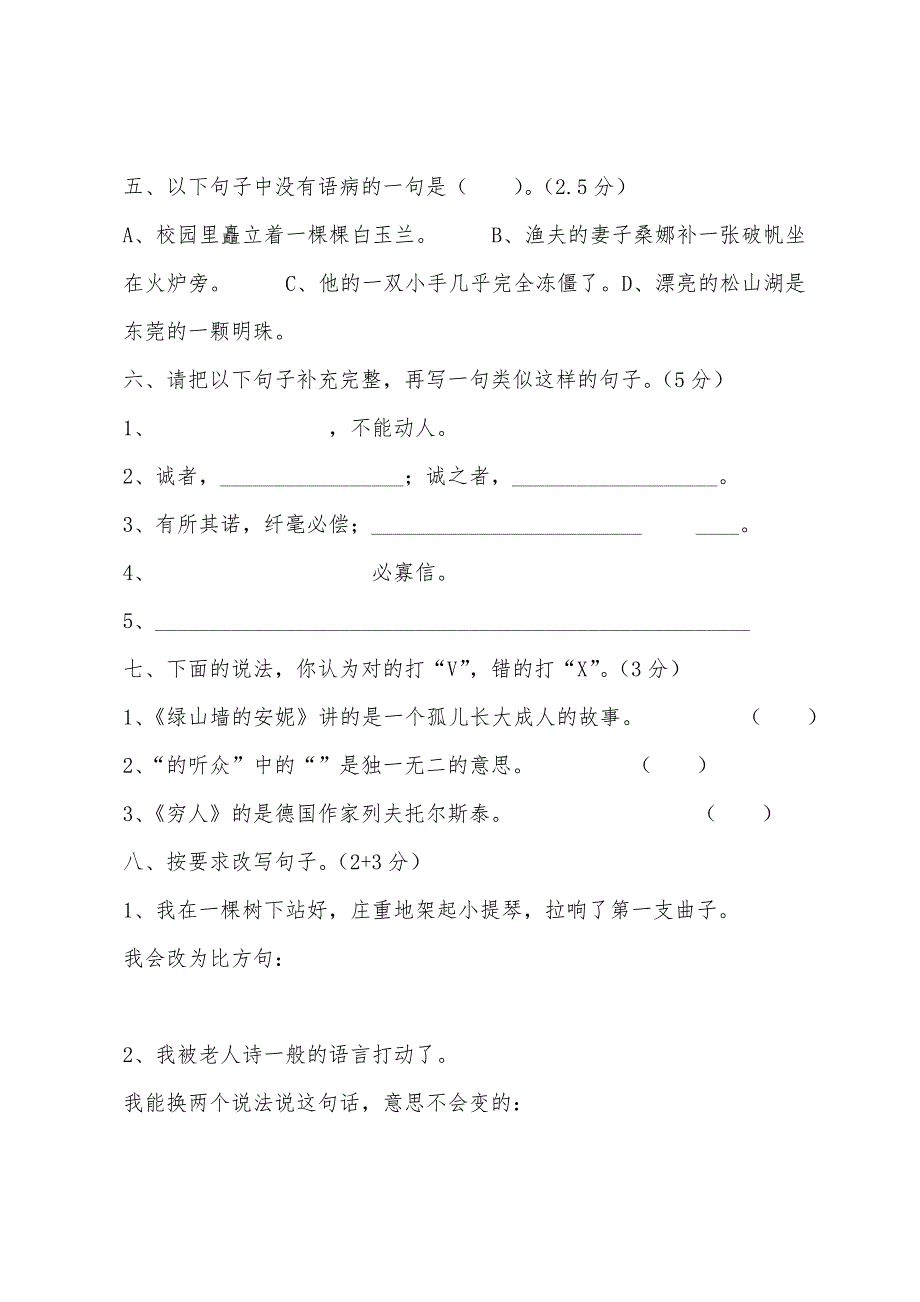 五、以下句子中没有语病的一句是（　　）。（2.5分）
A、校园里矗立着一棵棵白玉兰。　　B、渔夫的妻子桑娜补一张破帆坐
在火炉旁。　　C、他的一双小手几乎完全冻僵了。D、漂亮的松山湖是
东莞的一颗明珠。
六、请把以下句子补充完整，再写一句类似这样的句子。（5分）
1、　　　　　　　　，不能动人。
2、诚者，_________________；诚之者，___________________。
3、有所其诺，纤毫必偿；_________________________　　____。
4、　　　　　　　　　　必寡信。
5、_______________________________________________________
七、下面的说法，你认为对的打“V”，错的打“X”。（3分）
1、《绿山墙的安妮》讲的是一个孤儿长大成人的故事。　　　　　（　　）
2、“的听众”中的“”是独一无二的意思。　　　　　（　　）
3、《穷人》的是德国作家列夫托尔斯泰。　　　　　　　　　（　　）
八、按要求改写句子。（2+3分）
1、我在一棵树下站好，庄重地架起小提琴，拉响了第一支曲子。
我会改为比方句：
2、我被老人诗一般的语言打动了。
我能换两个说法说这句话，意思不会变的：